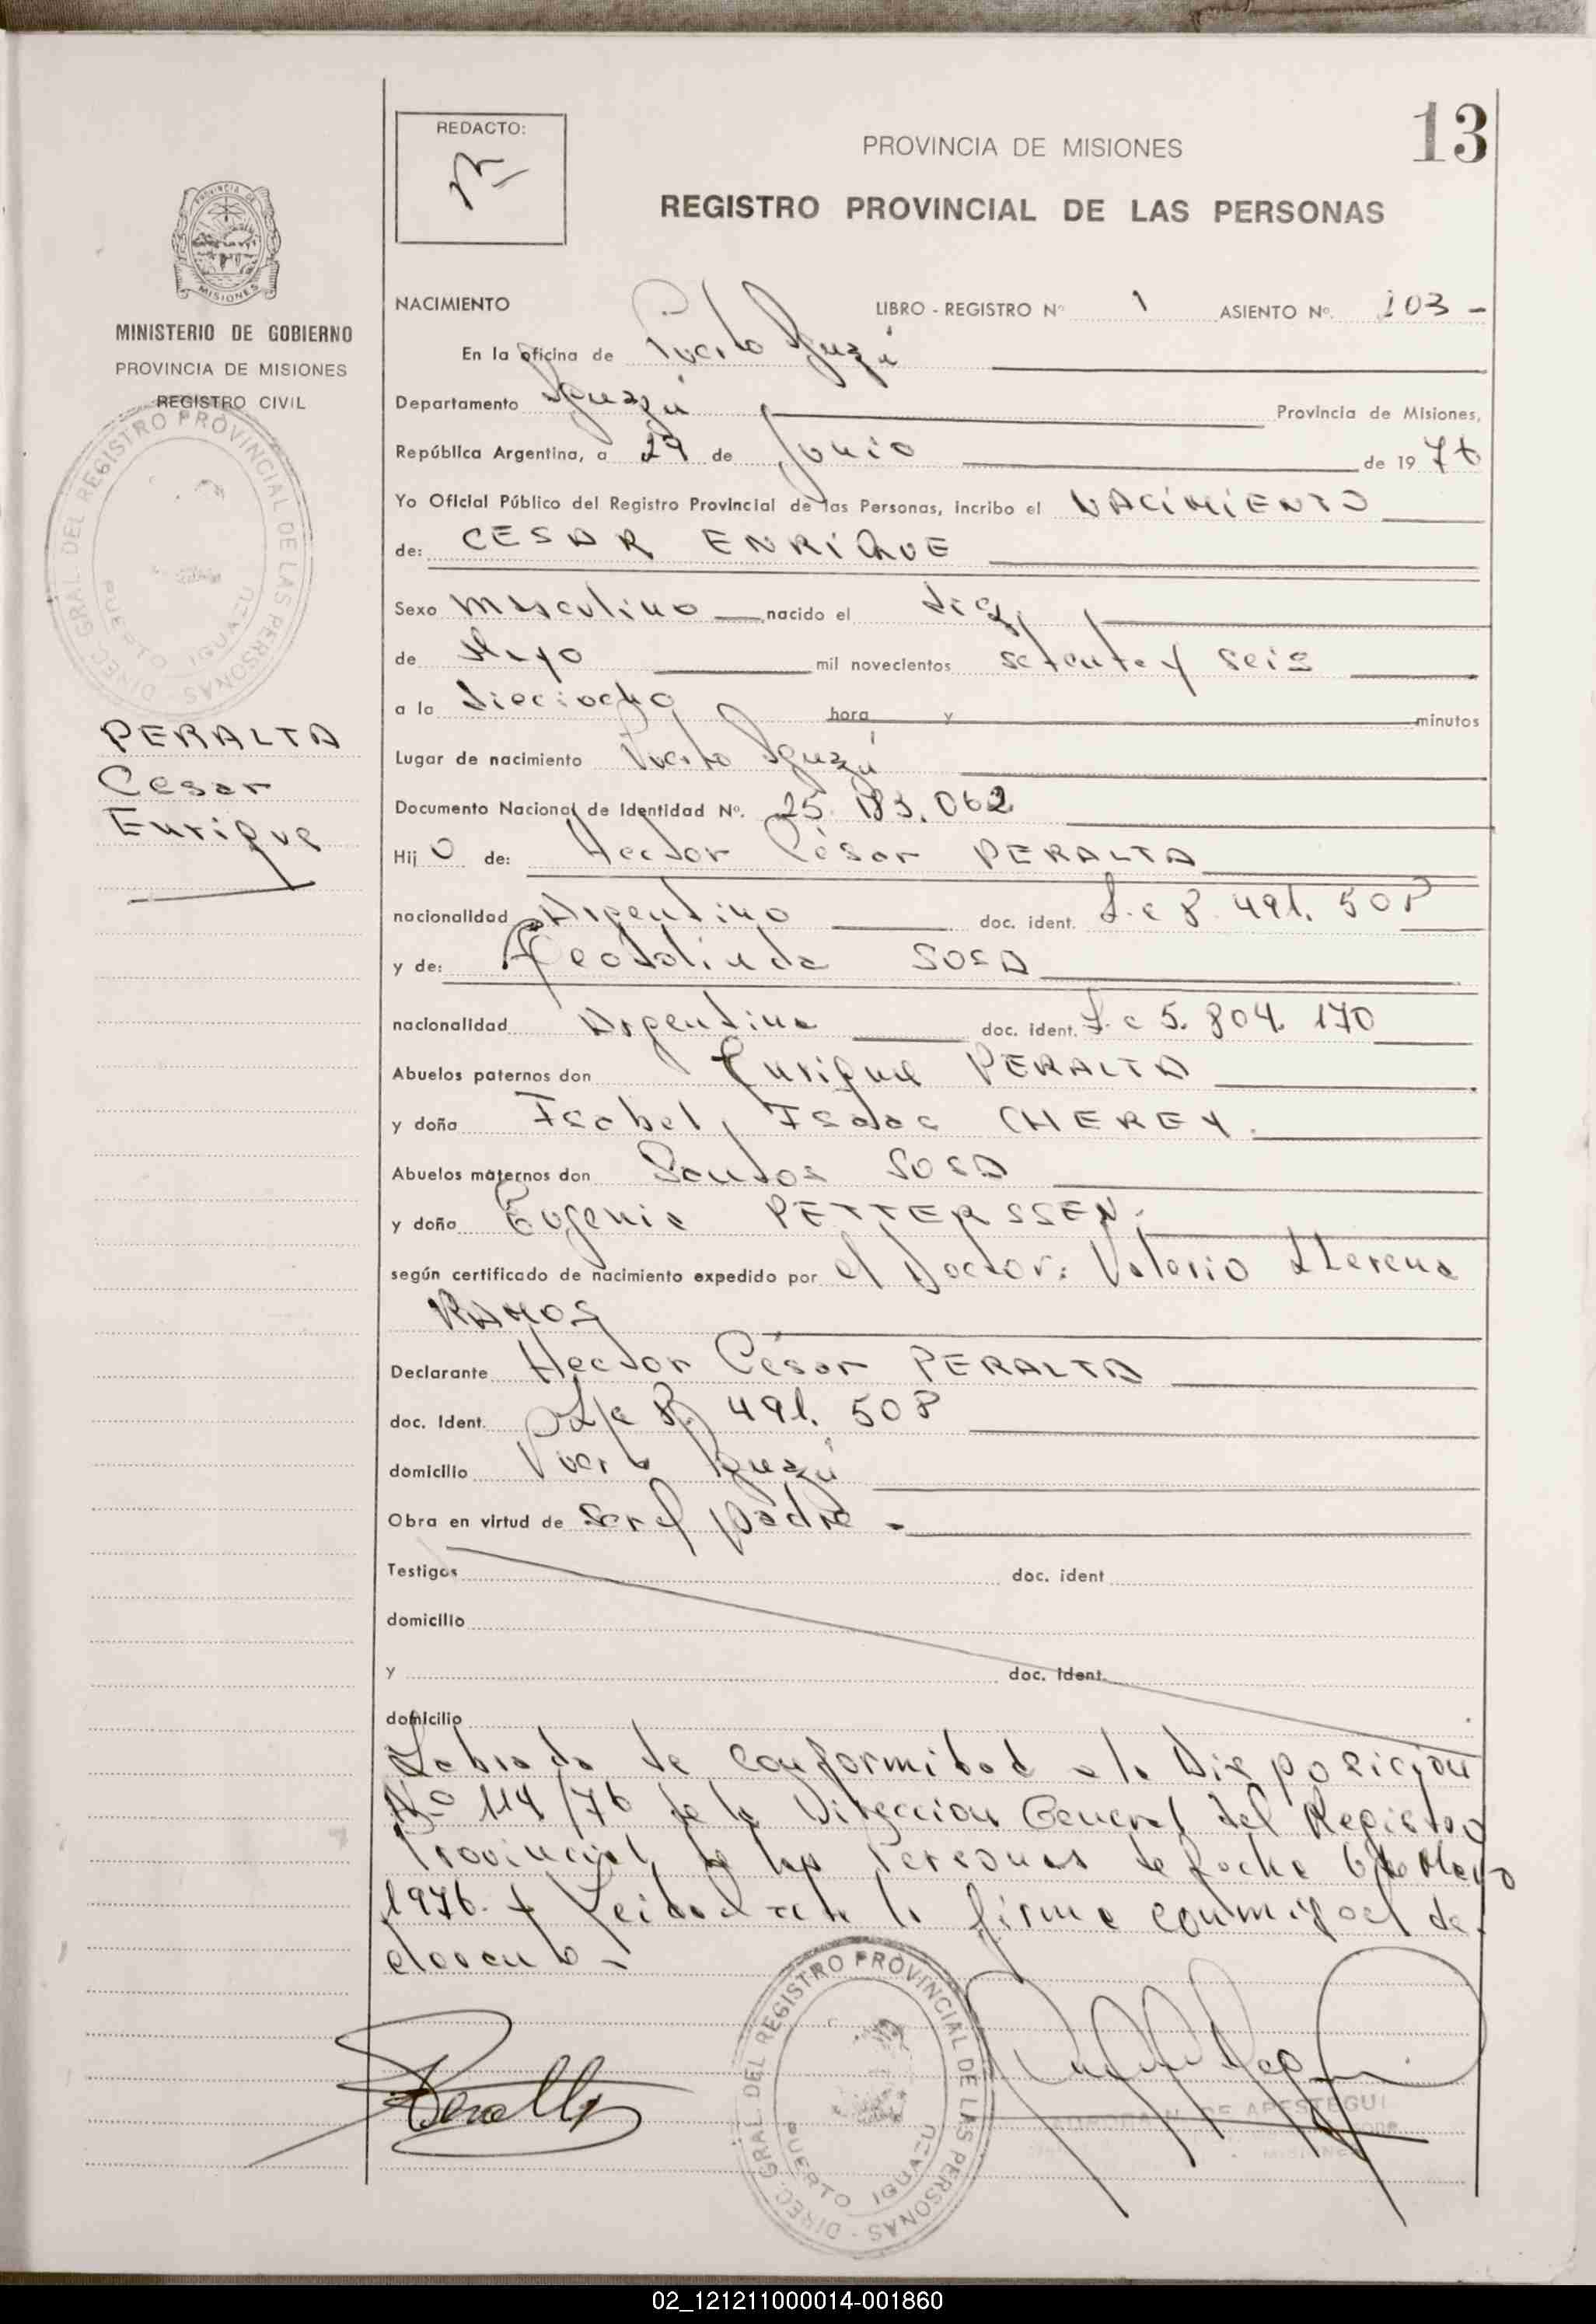 13
REDACTO:
PROVINCIA DE MISIONES
REGISTRO PROVINCIAL DE LAS PERSONAS
PROVINCIA DE
MISIONES
MINISTERIO DE GOBIERNO
PROVINCIA DE MISIONES
REGISTRO CIVIL
DIREC. GRAL. DEL REGISTRO PROVINCIAL DE LAS PERSONAS
PUERTO IGUAZU
PERALTA
Cesar
Enrique
NACIMIENTO LIBRO - REGISTRO Nº 1 ASIENTO Nº. 103 -
En la oficina de Puerto Iguazú
Departamento Iguazú Provincia de Misiones,
República Argentina, a 29 de Junio de 1976
Yo Oficial Público del Registro Provincial de las Personas, incribo el NACIMIENTO
de: CESAR ENRIQUE
Sexo Masculino nacido el diez
de Mayo mil novecientos setenta y seis
a la dieciocho hora y minutos
Lugar de nacimiento Puerto Iguazú
Documento Nacional de Identidad Nº. 25.183.062
Hijo de: Hector César PERALTA
nacionalidad Argentino doc. ident. L.e 8.491.508
y de: Teodolinda SOSA
nacionalidad Argentina doc. ident. L.c 5.804.170
Abuelos paternos don Enrique PERALTA
y doña Isabel Isaac CHEREY.
Abuelos maternos don Santos SOSA
y doña Eugenia PETTERSSEN.
según certificado de nacimiento expedido por el Doctor: Valerio LLerena
RAMOS
Declarante Hector César PERALTA
doc. Ident. L/e 8.491.508
domicilio Puerto Iguazú
Obra en virtud de ser el padre -
Testigos doc. ident
domicilio
y doc. Ident.
domicilio
Labrada de conformidad a la Disposición
Nº 114/76 de la Dirección General del Registro
Provincial de las Personas de fecha 6 de Mayo
1976. Leida acta la firma conmigo el de-
claranto -
Peralta
DIREC. GRAL. DEL REGISTRO PROVINCIAL DE LAS PERSONAS
PUERTO IGUAZU
DE APESTEGUI
02_121211000014-001860